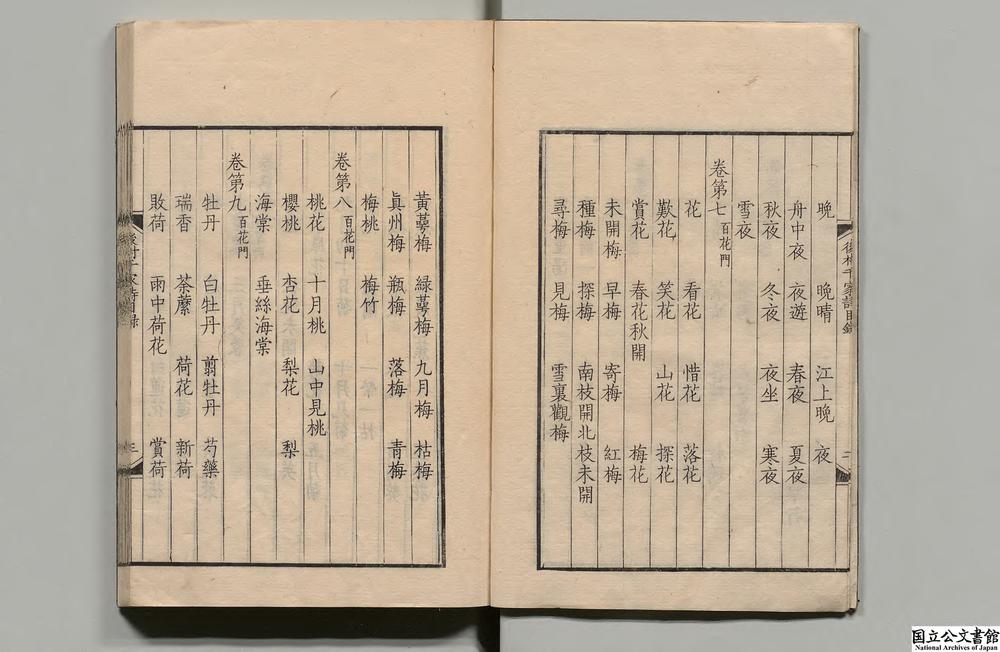 晩 晩晴 江上晩 夜
舟中夜 夜遊 春夜 夏夜
秋夜 冬夜 夜坐 寒夜
雪夜
卷第七 百花門
花 看花 惜花 落花
歎花 笑花 山花 探花
賞花 春花秋開 梅花
未開梅 早梅 寄梅 紅梅
種梅 探梅 南枝開北枝未開
尋梅 見梅 雪裏觀梅
黃蕚梅 綠蕚梅 九月梅 枯梅
眞州梅 瓶梅 落梅 青梅
梅桃 梅竹
卷第八 百花門
桃花 十月桃 山中見桃
櫻桃 杏花 梨花 梨
海棠 垂絲海棠
卷第九 百花門
牡丹 白牡丹 翦牡丹 芍藥
瑞香 荼蘼 荷花 新荷
敗荷 雨中荷花 賞荷
国立公文書館
National Archives of Japan